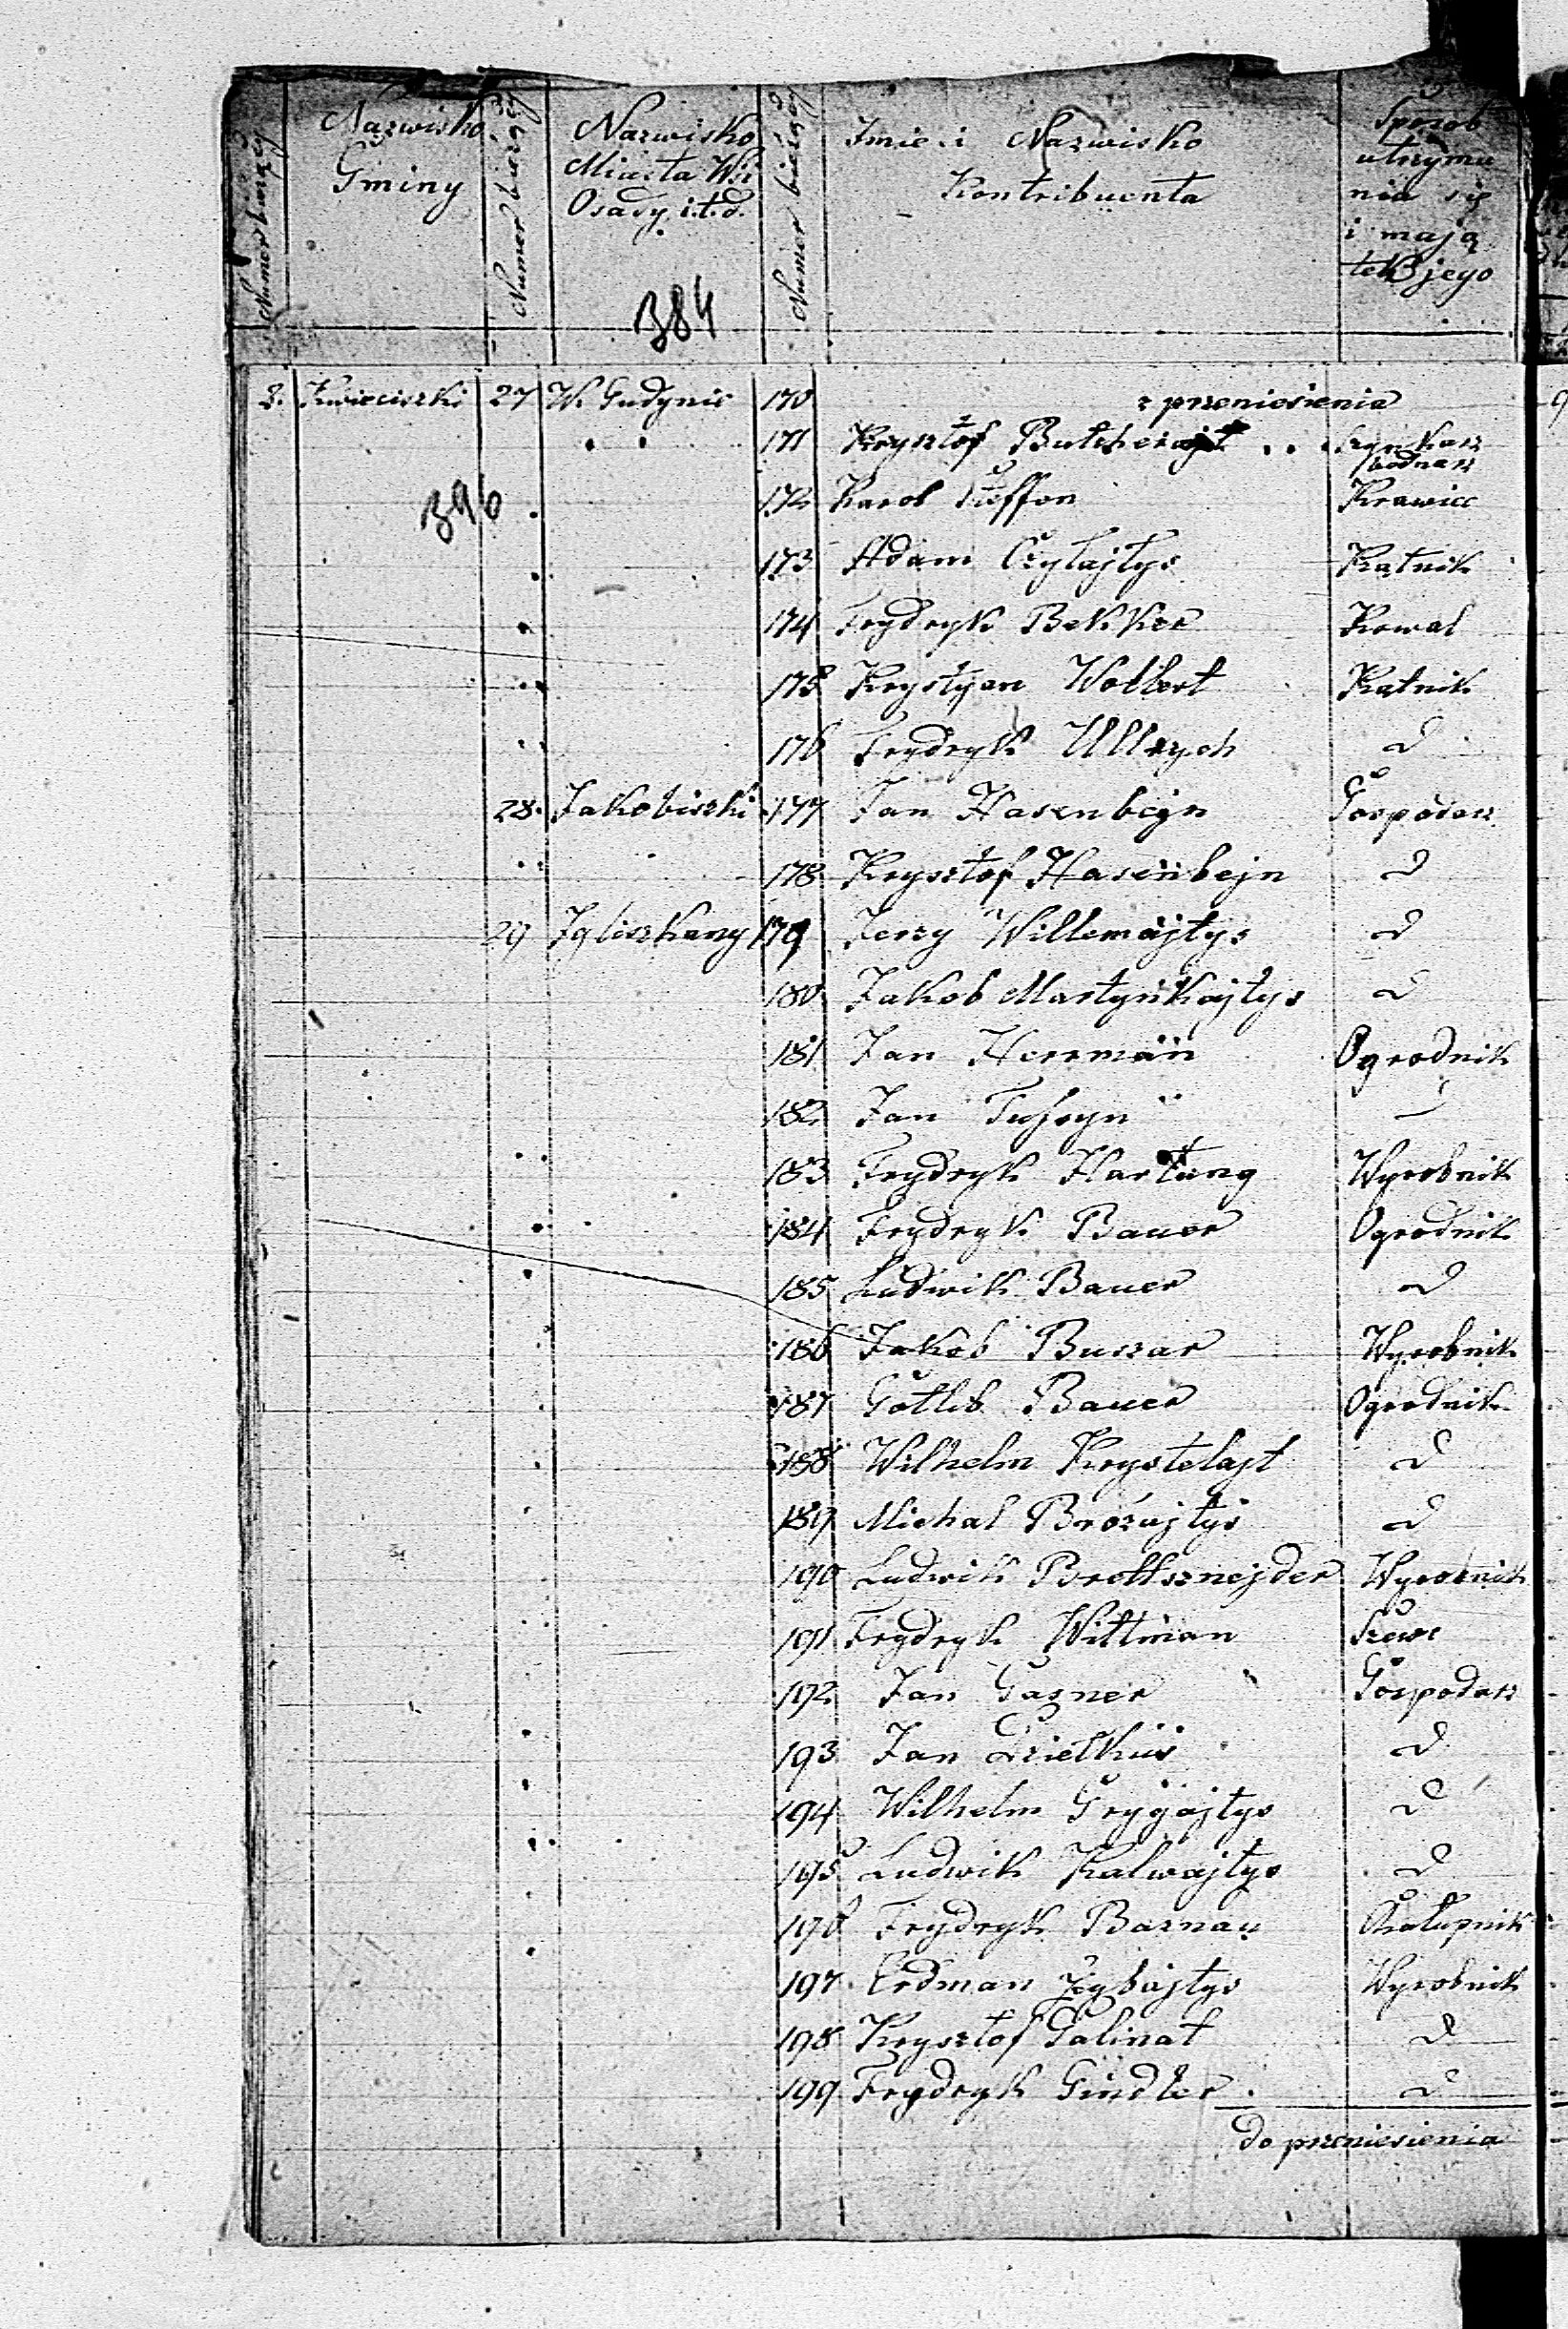 Numer bieżący
Nazwisko Gminy
Numer bieżący
Nazwisko Miasta Wsi Osady i.t.d.
Numer bieżący
Imie i Nazwisko Kontribuenta
Sposób utrzymania się i majątek jego
384
2. Kwieciszki 27 W. Gudynie 170 z przeniesienia
171 Krysztof Szynkarz bednarz
396
172 Karol Steffen Krawiec
173 Adam Czylajtys Kątnik
174 Frydryk Bekker Kowal
175 Krystyan Wolbert Kątnik
176 Frydryk Ullrych d
28. Jakobiszki 177 Jan Hasenbejn Gospodarz
178 Krysztof Hasenbejn d
29 Igliszkany 179 Jerzy Willemajtys d
180 Jakob Martynkajtys d
181 Jan Herrman Ogrodnik
182 Jan d
183 Frydryk Hartung Wyrobnik
184 Frydryk Bauer Ogrodnik
185 Ludwik Bauer d
186 Jakob Buszar Wyrobnik
187 Gotlib Bauer Ogrodnik
188 Wilhelm Krystelajt d
189 Michał Brożajtys d
190 Ludwik Brettsznejder Wyrobnik
191 Frydryk Wittman Szewc
192 Jan Gasner Gospodarz
193 Jan d
194 Wilhelm Grygajtys d
195 Ludwik Kalwajtys d
196 Frydryk Barnau Chałupnik
197 Erdman Wyrobnik
198 Krysztof Galinat d
199 Frydryk Gindler d
do przeniesienia